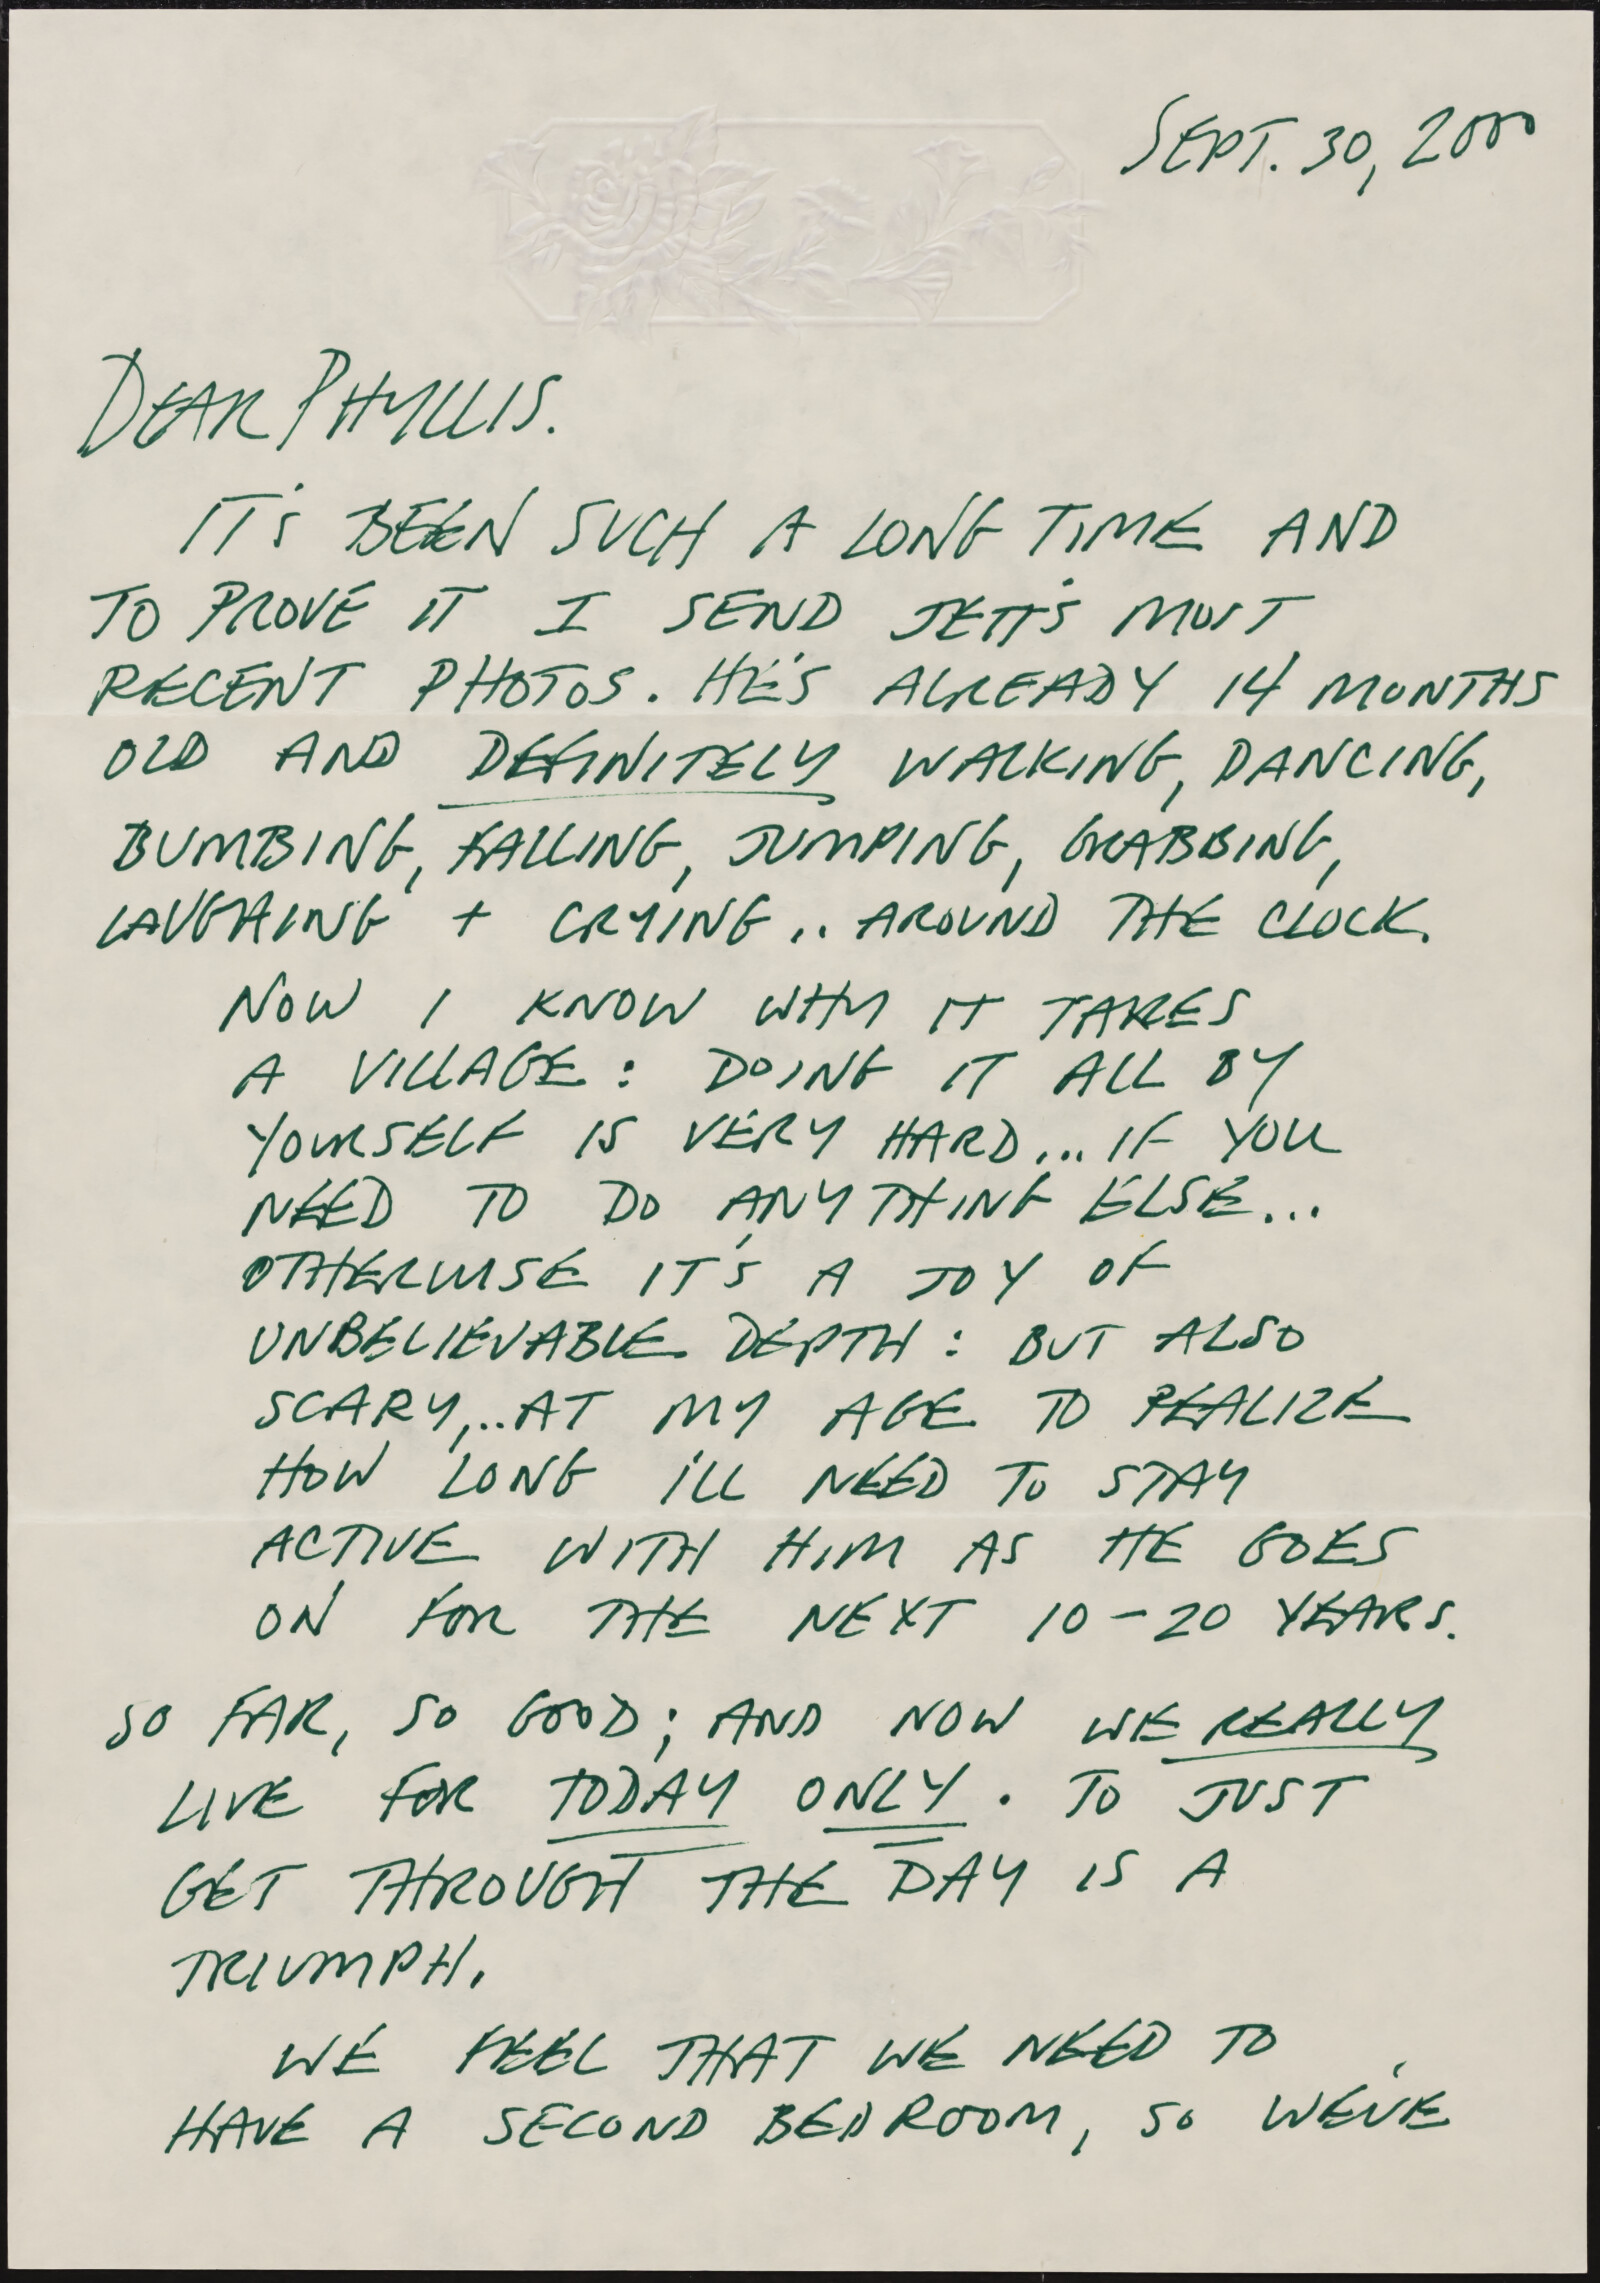 SEPT. 30, 2000
DEAR PHYLLIS.
IT'S BEEN SUCH A LONG TIME AND
TO PROVE IT I SEND JETT'S MOST
RECENT PHOTOS. HE'S ALREADY 14 MONTHS
OLD AND DEFINITELY WALKING, DANCING,
BUMBING, FALLING, JUMPING, GRABBING,
LAUGHING + CRYING .. AROUND THE CLOCK.
NOW I KNOW WHY IT TAKES
A VILLAGE: DOING IT ALL BY
YOURSELF IS VERY HARD... IF YOU
NEED TO DO ANYTHING ELSE...
OTHERWISE IT'S A JOY OF
UNBELIEVABLE DEPTH: BUT ALSO
SCARY,.. AT MY AGE TO REALIZE
HOW LONG I'LL NEED TO STAY
ACTIVE WITH HIM AS HE GOES
ON FOR THE NEXT 10-20 YEARS.
SO FAR, SO GOOD; AND NOW WE REALLY
LIVE FOR TODAY ONLY. TO JUST
GET THROUGH THE DAY IS A
TRIUMPH.
WE FEEL THAT WE NEED TO
HAVE A SECOND BEDROOM, SO WE'VE